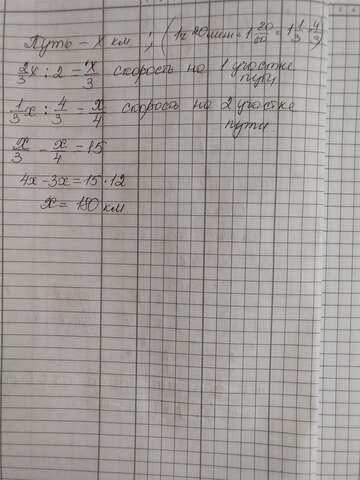 Путь – х км ; (1ч 20мин = 1 20/60 = 1 1/3 = 4/3)
2/3 х : 2 = х/3 скорость на 1 участке
пути
1/3 х : 4/3 = х/4 скорость на 2 участке
пути.
х/3 – х/4 = 15
4х – 3х = 15 · 12
х = 180 км